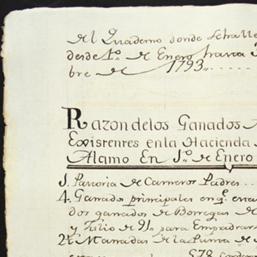 del Quaderno donde se halla
desde 1º. de Enero hasta
bre de 1793.
Razon de los Ganados
Existentes en la Hacienda
Alamo En 1º. de Enero
1. Partoria de Carneros Padres
4. Ganados principales en qe.
dos ganados de Borregas de
y Julio de
2. Manadas de la Punta de
578